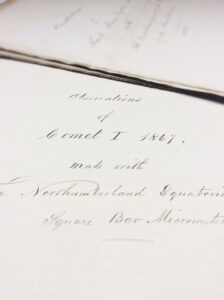 Observations
of
Comet I 1867.
made with
The Northumberland Equatorial
Square Bar Micrometer